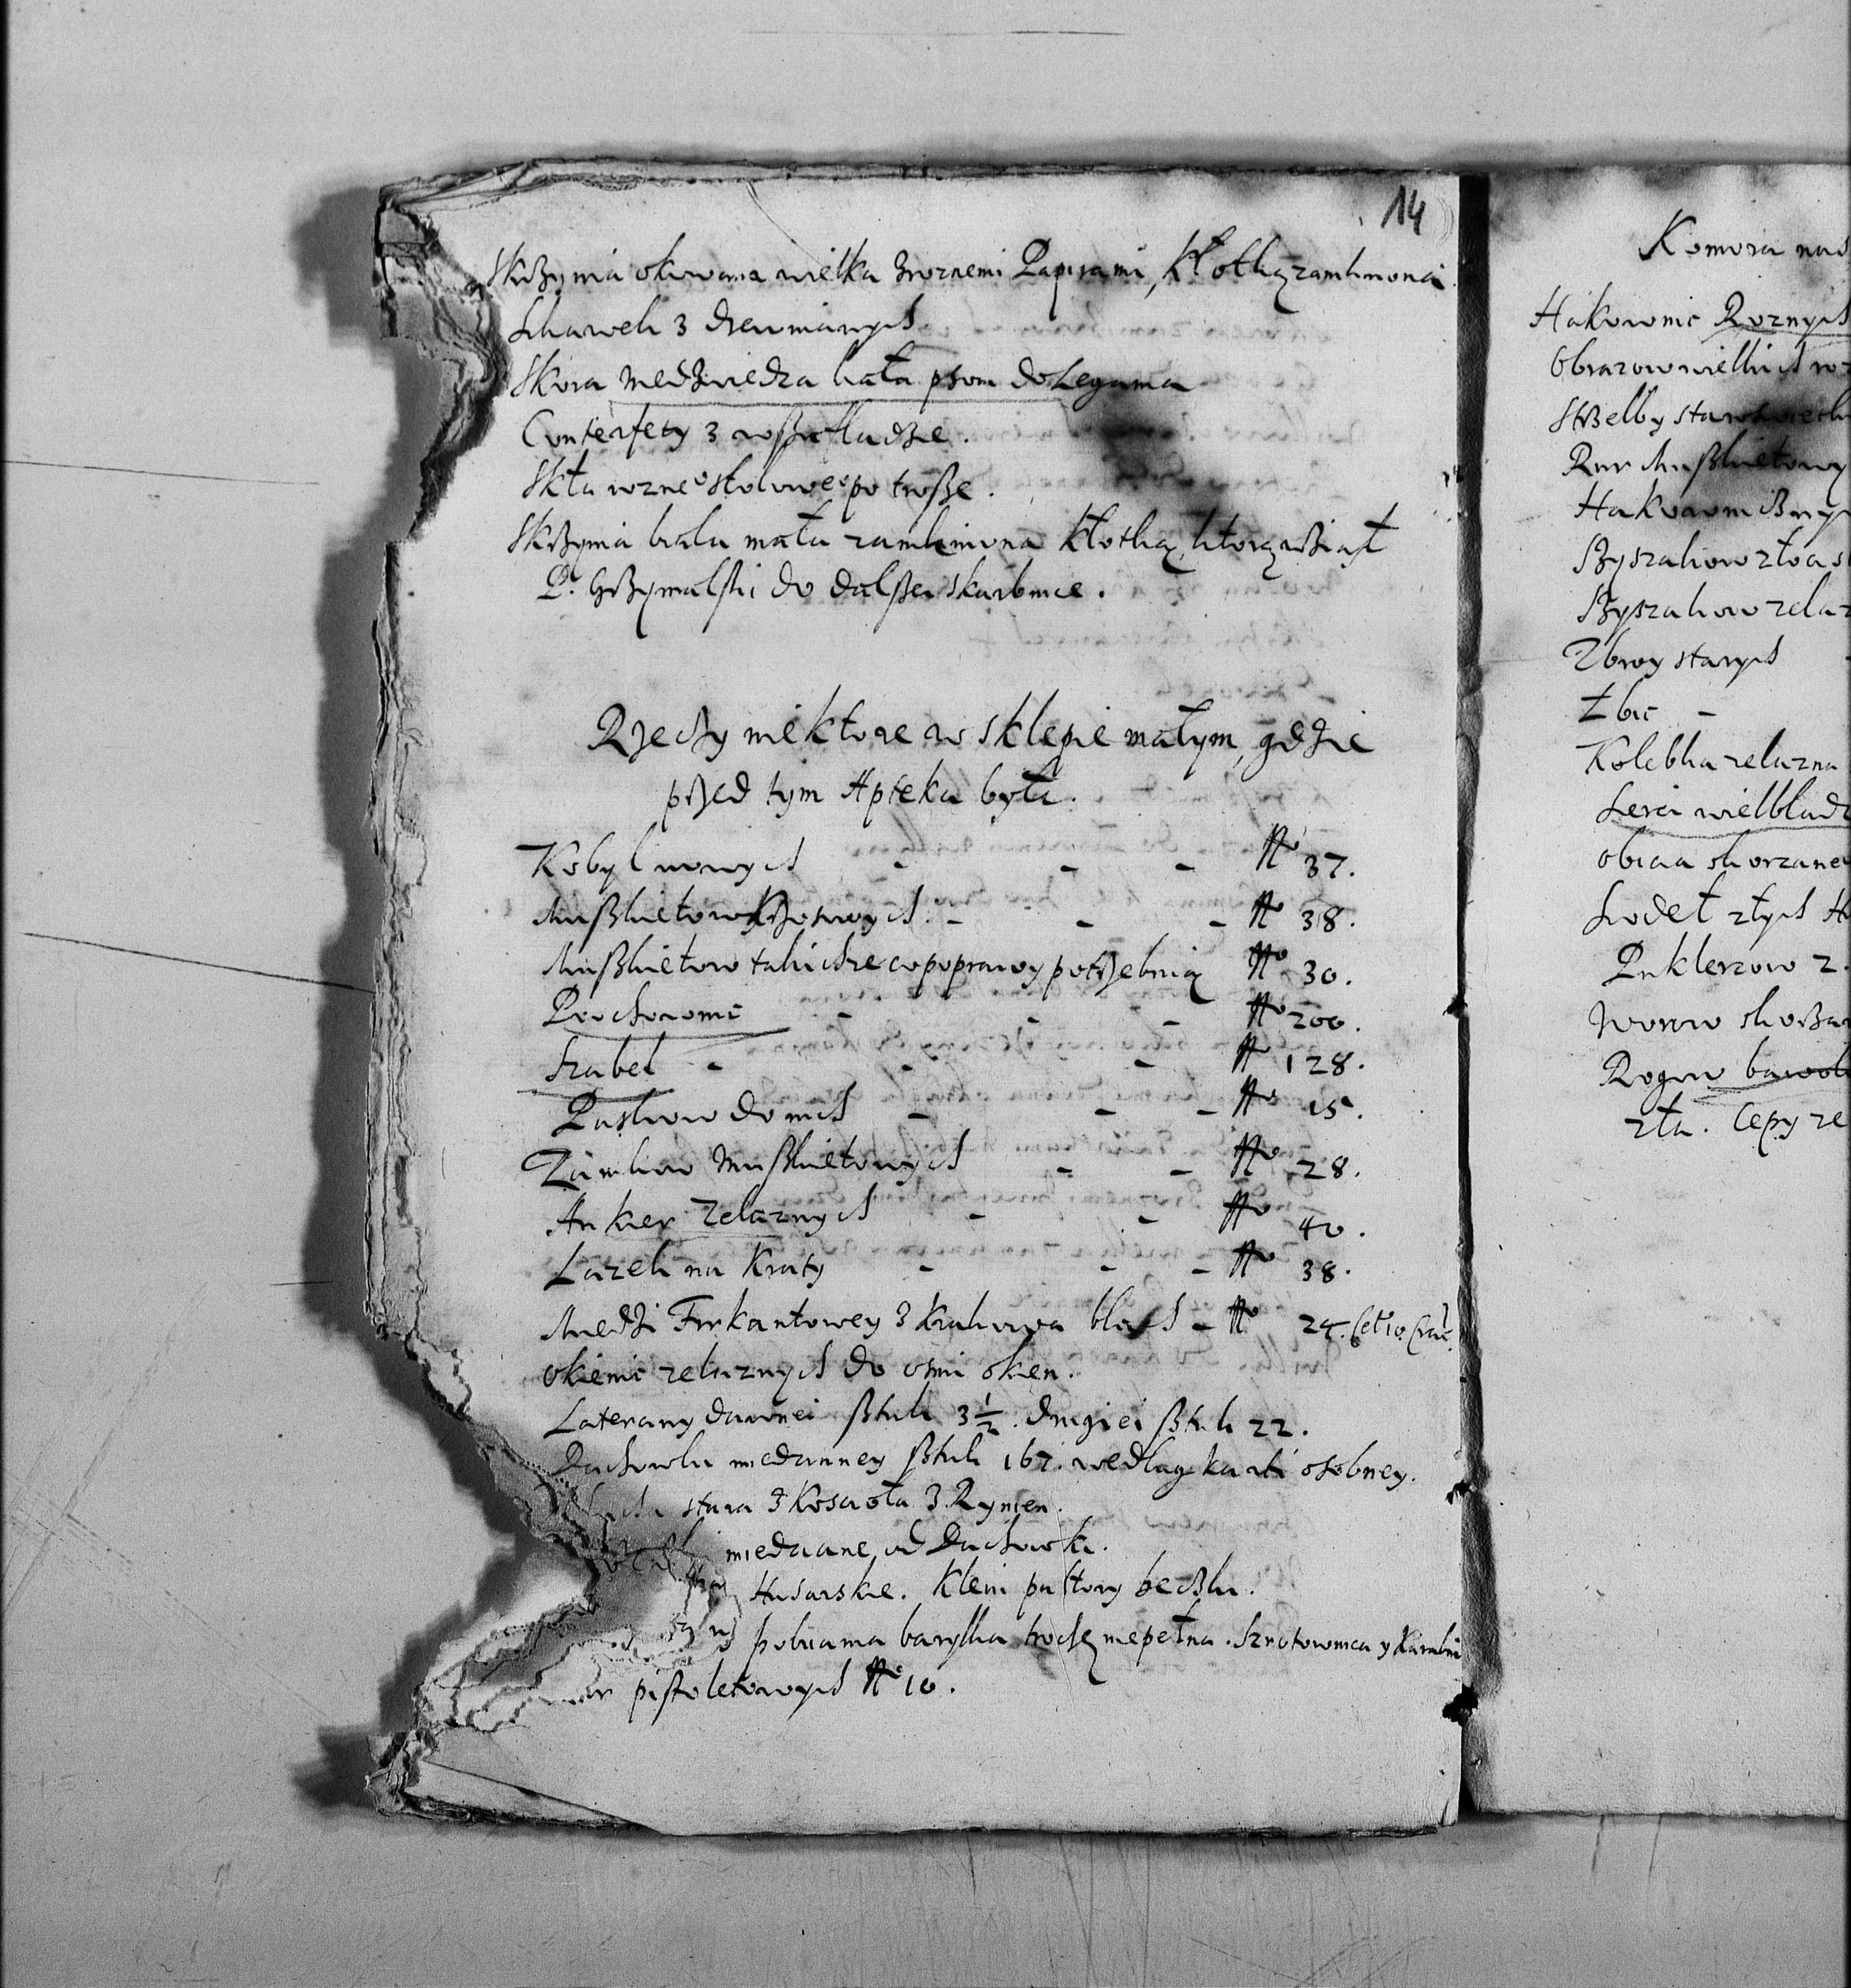 14
Skrzynia okowana wielka z roznemi Papirami, Kłotką zamkniona
Ławek 3 drewnianych
Skora Niedzwiedza biała psom do Legania
Conterfety 3 w szufladzie.
Skła rozne° stołowe° po trosze.
Skrzynia biała mała zamkniona kłotką, ktorą wział
P. Grzymalski do dalszei skarbnice.
Rzeczy niektore w sklepie małym, gdzie
przed tym Apteka była.
Kobyl nowych - - - No 37.
Muszkietow Krosowych - - - No 38.
Muszkietow takichze co poprawy potrzebuią No 30.
Prochownic - - - No 200.
Szabel - - - No 128.
Paskow do nich - - - No 15.
Zamkow Muszkietowych - - No 28.
Ankier Zelaznych - - No 40.
Lazek na Kraty - - - No 38.
Miedzi Firkantowey z Krakowa blach - No 24.
Okienic zelaznych do osmi okien.
Laterany dawnei sztuk 3 1/2. drugiei sztuk 22.
Dachowki miedzianney sztuk 167. wedlug karti osobney.
stara z Koscioła z Rynien.
miedziane od Dachowki.
Husarskie. Kleiu pułtory beczki.
pobiiana baryłka trochę niepełna. Szrotownica y
pistoletowych No 10.
Komora nas
Hakownic Roznych
Obrazow wielkich
Strzelby
Rur Muszkietowy
Hakownicznych
Szyszakow
Szyszakow zelaz
Zbroy starych
Łbic -
Kolebka zelazna
Sersci wielbladz
obicia skorzane
Siodeł złych
Puklerzow 2.
Worow skorza
Rogow bawol
zła. Cepy ze